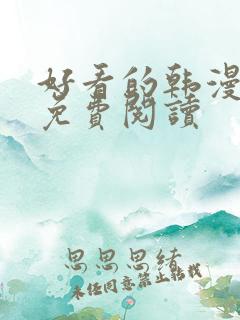 好看的韩漫
免費閱讀
思思思绪
未经同意禁止转载